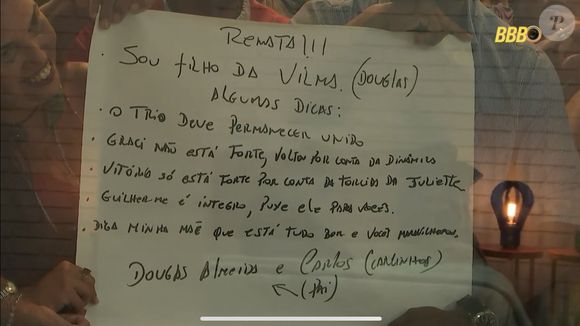 BBB
RENATA!!!
· SOU FILHO DA VILMA. (DOUGLAS)
ALGUMAS DICAS:
· O TRIO DEVE PERMANECER UNIDO
· GRACI NÃO ESTÁ FORTE, VOLTOU POR CONTA DA DINÂMICA
· VITÓRIA SÓ ESTÁ FORTE POR CONTA DA TORCIDA DA JULIETTE
· GUILHERME É ÍNTEGRO, PUXE ELE PARA VOCÊS.
· DIGA MINHA MÃE QUE ESTÁ TUDO BEM E VOCÊS
DOUGLAS ALMEIDA E CARLOS (CARLINHOS)
(PAI)